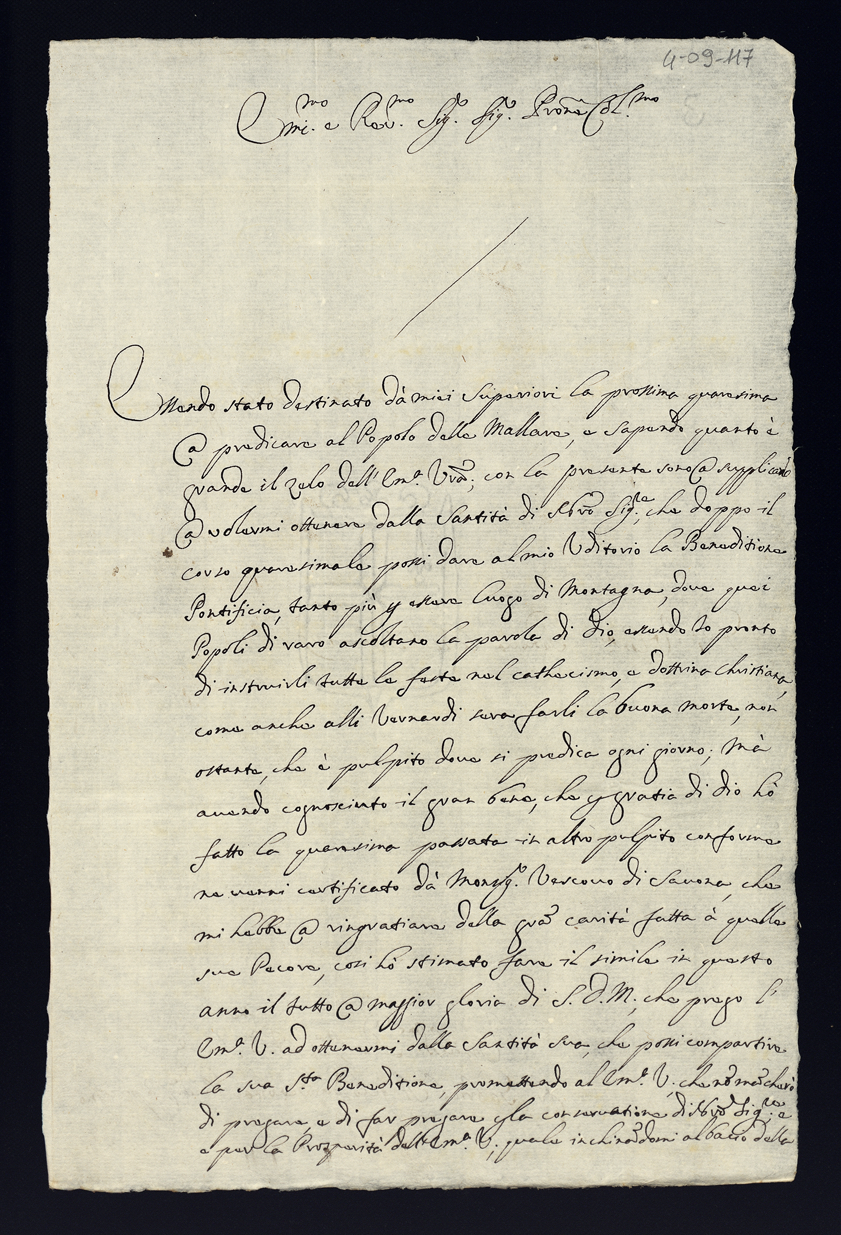 4-09-117
Em.mo e Rev.mo Sig.r Sig.r Prone Col.mo
Essendo stato destinato dà miei Superiori la prossima quaresima
a predicare al Popolo delle Mallare, e sapendo quanto è
grande il zelo dell'Em.a Vrã; con la presente sono a supplicarla
a volermi ottenere dalla Santità di Nrõ Sig.re, che doppo il
corso quaresimale possi dare al mio Uditorio la Beneditione
Pontificia, tanto più p essere luogo di Montagna, dove quei
Popoli di raro ascoltano la parola di Dio, essendo Io pronto
di instruirli tutte le feste nel cathecismo, e dottrina christiana,
come anche alli Vernardi sera farli la buona morte, non
ostante, che è pulpito dove si predica ogni giorno; mà
avendo cognosciuto il gran bene, che p gratia di Dio hò
fatto la quaresima passata in altro pulpito conforme
ne venni certificato dà Monsig.r Vescovo di Savona, che
mi hebbe a ringratiare della grã carità fatta à quelle
sue Pecore, così hò stimato fare il simile in questo
anno il tutto a maggior gloria di S. D. M.; che prego l'
Em.a V. ad ottenermi dalla Santità sua, che possi compartire
la sua S.ta Beneditione, promettendo al Em.a V, che nõ mãcherò
di pregare, e di far pregare p la conservatione di Nrõ Sig.re e
e per la Prosperità dell'Em.a V; quale inchinãdomi al bacio della